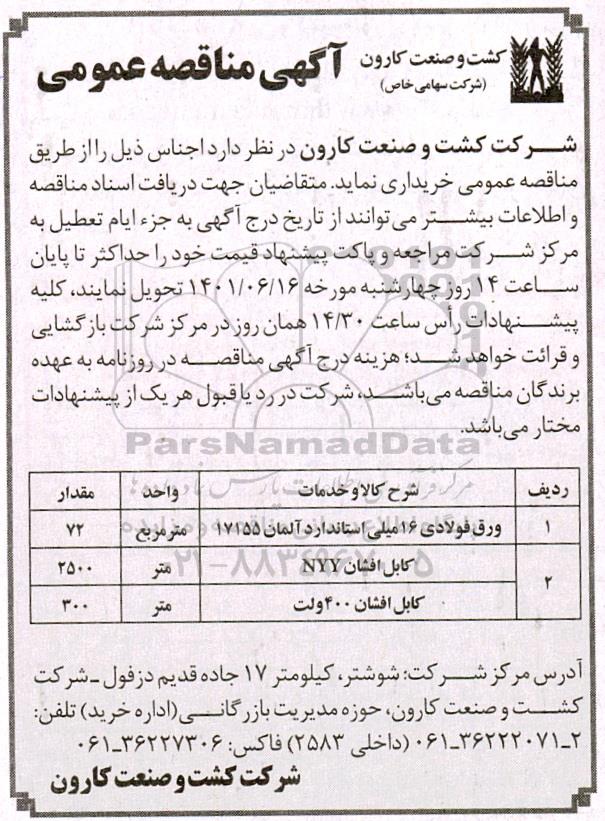 کشت و صنعت کارون
(شرکت سهامی خاص)
آگهی مناقصه عمومی
شرکت کشت و صنعت کارون در نظر دارد اجناس ذیل را از طریق
مناقصه عمومی خریداری نماید. متقاضیان جهت دریافت اسناد مناقصه
و اطلاعات بیشتر می توانند از تاریخ درج آگهی به جزء ایام تعطیل به
مرکز شرکت مراجعه و پاکت پیشنهاد قیمت خود را حداکثر تا پایان
ساعت ۱۴ روز چهارشنبه مورخه ۱۴۰۱/۰۶/۱۶ تحویل نمایند، کلیه
پیشنهادات رأس ساعت ۱۴/۳۰ همان روز در مرکز شرکت بازگشایی
و قرائت خواهد شد؛ هزینه درج آگهی مناقصه در روزنامه به عهده
برندگان مناقصه می باشد، شرکت در رد یا قبول هر یک از پیشنهادات
مختار می باشد.
ParsNamadData
ردیف شرح کالا و خدمات واحد مقدار
۱ ورق فولادی ۱۶ میلی استاندارد آلمان ۱۷۱۵۵ مترمربع ۷۲
۲ کابل افشان NYY متر ۲۵۰۰
کابل افشان ۴۰۰ ولت متر ۳۰۰
۰۲۱-۸۸۳۴۹۶۷۰-۵
آدرس مرکز شرکت: شوشتر، کیلومتر ۱۷ جاده قدیم دزفول ـ شرکت
کشت و صنعت کارون، حوزه مدیریت بازرگانی (اداره خرید) تلفن:
۲ـ۳۶۲۲۲۰۷۱ـ۰۶۱ (داخلی ۲۵۸۳) فاکس: ۳۶۲۲۷۳۰۶ـ۰۶۱
شرکت کشت و صنعت کارون